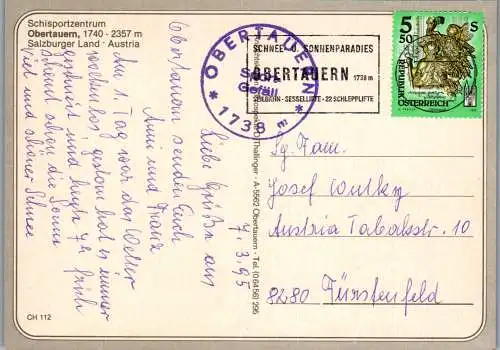 Schisportzentrum
Obertauern, 1740 - 2357 m
Salzburger Land · Austria
7.3.95
Liebe Grüße aus
Obertauern senden Euch
Anni und Franz
Am 1. Tag war das Wetter
wolkenlos, gestern hat es immer
geschneit und heute 7h früh
scheint schon die Sonne
viel und schöner Schnee
CH 112
OBERTAUERN
1738 m
Gefäll
SCHNEE- U. SONNENPARADIES
OBERTAUERN 1738 m
SEILBAHN - SESSELLIFTE - 22 SCHLEPPLIFTE
5 50 S
REPUBLIK
ÖSTERREICH
Thallinger · A-5562 Obertauern · Tel. (0 64 56) 295
Sg. Fam.
Josef Wutky
Austria Tabakstr. 10
8280 Fürstenfeld